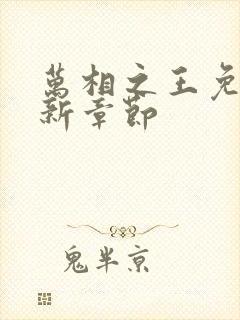 萬相之王免
新章節
鬼半京